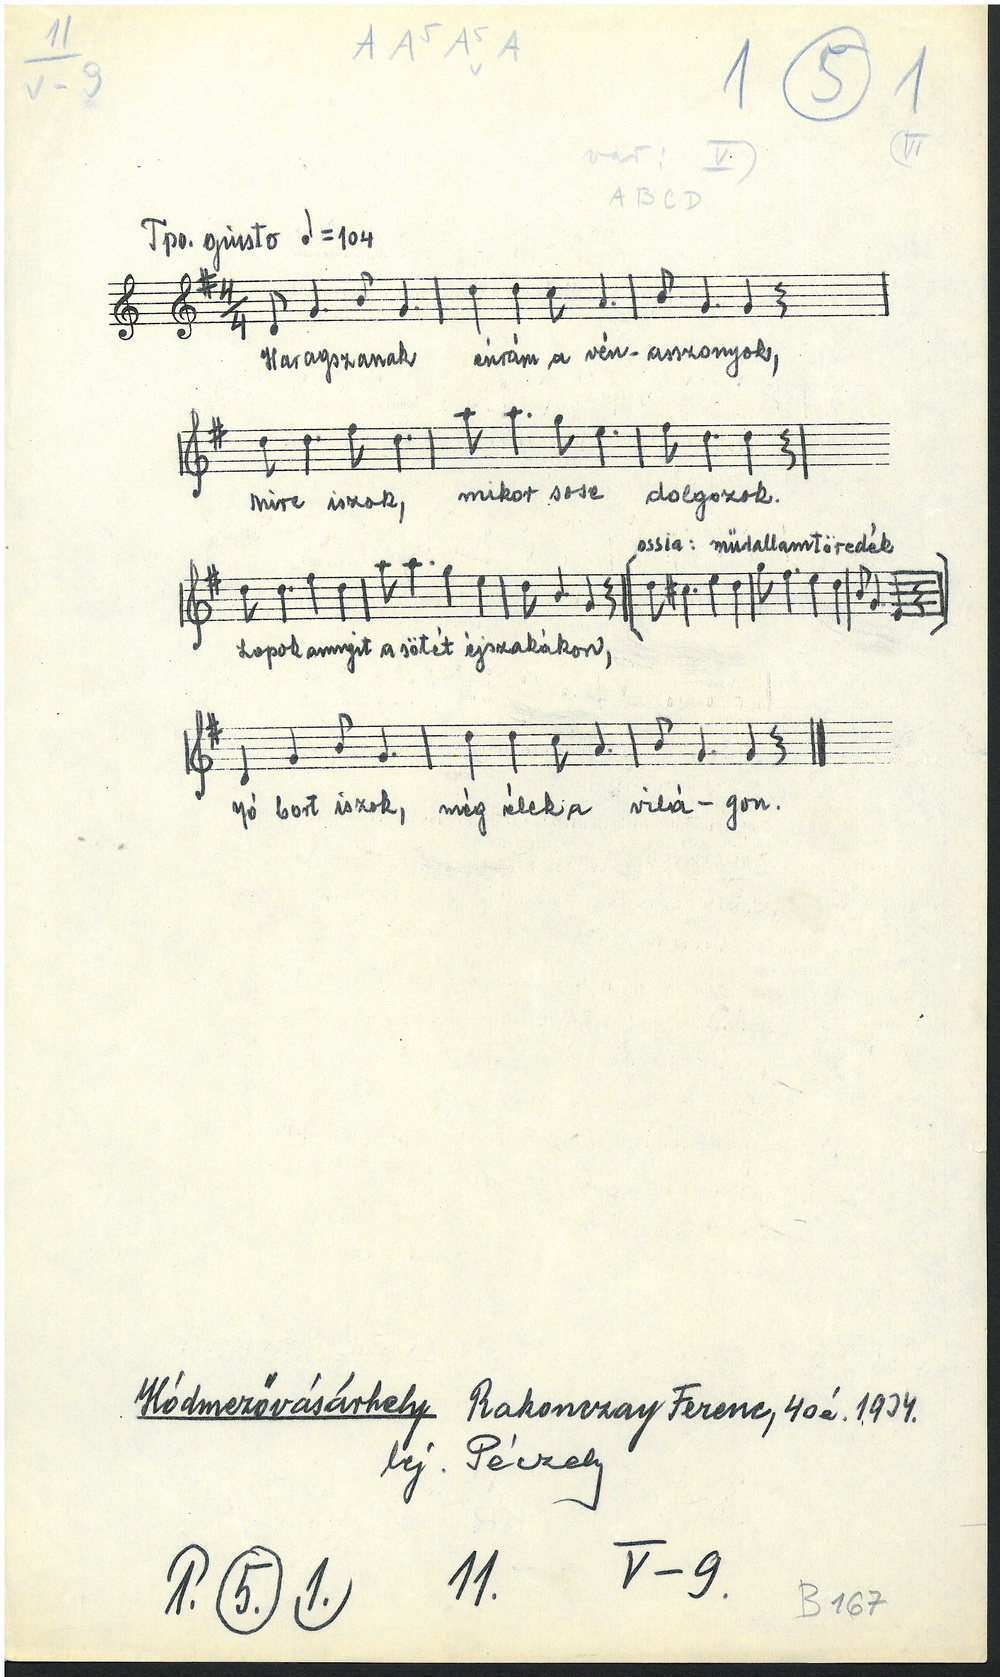 11
V-9
A A⁵ A⁵ᵥ A
1 5 1
var: V.)
(VI
A B C D
Tpo. giusto ♩=104
4/4
Haragszanak énrám a vén-asszonyok,
Mire iszok, mikor sose dolgozok.
ossia: műdallamtöredék
Lopok annyit a sötét éjszakákon,
Jó bort iszok, még élek a vilá-gon.
Hódmezővásárhely Rakonczay Ferenc, 40é. 1934.
lej. Péczely
1. 5. 1. 11. V-9.
B 167